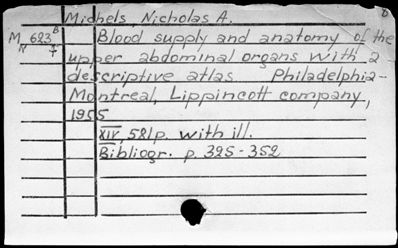 Michels, Nicholas A.
M 623 B Blood supply and anatomy of the
upper abdominal organs with a
descriptive atlas Philadelphia-
Montreal, Lippincott company,
1955
XIV, 581p. with ill.
Bibliogr. p. 325-352